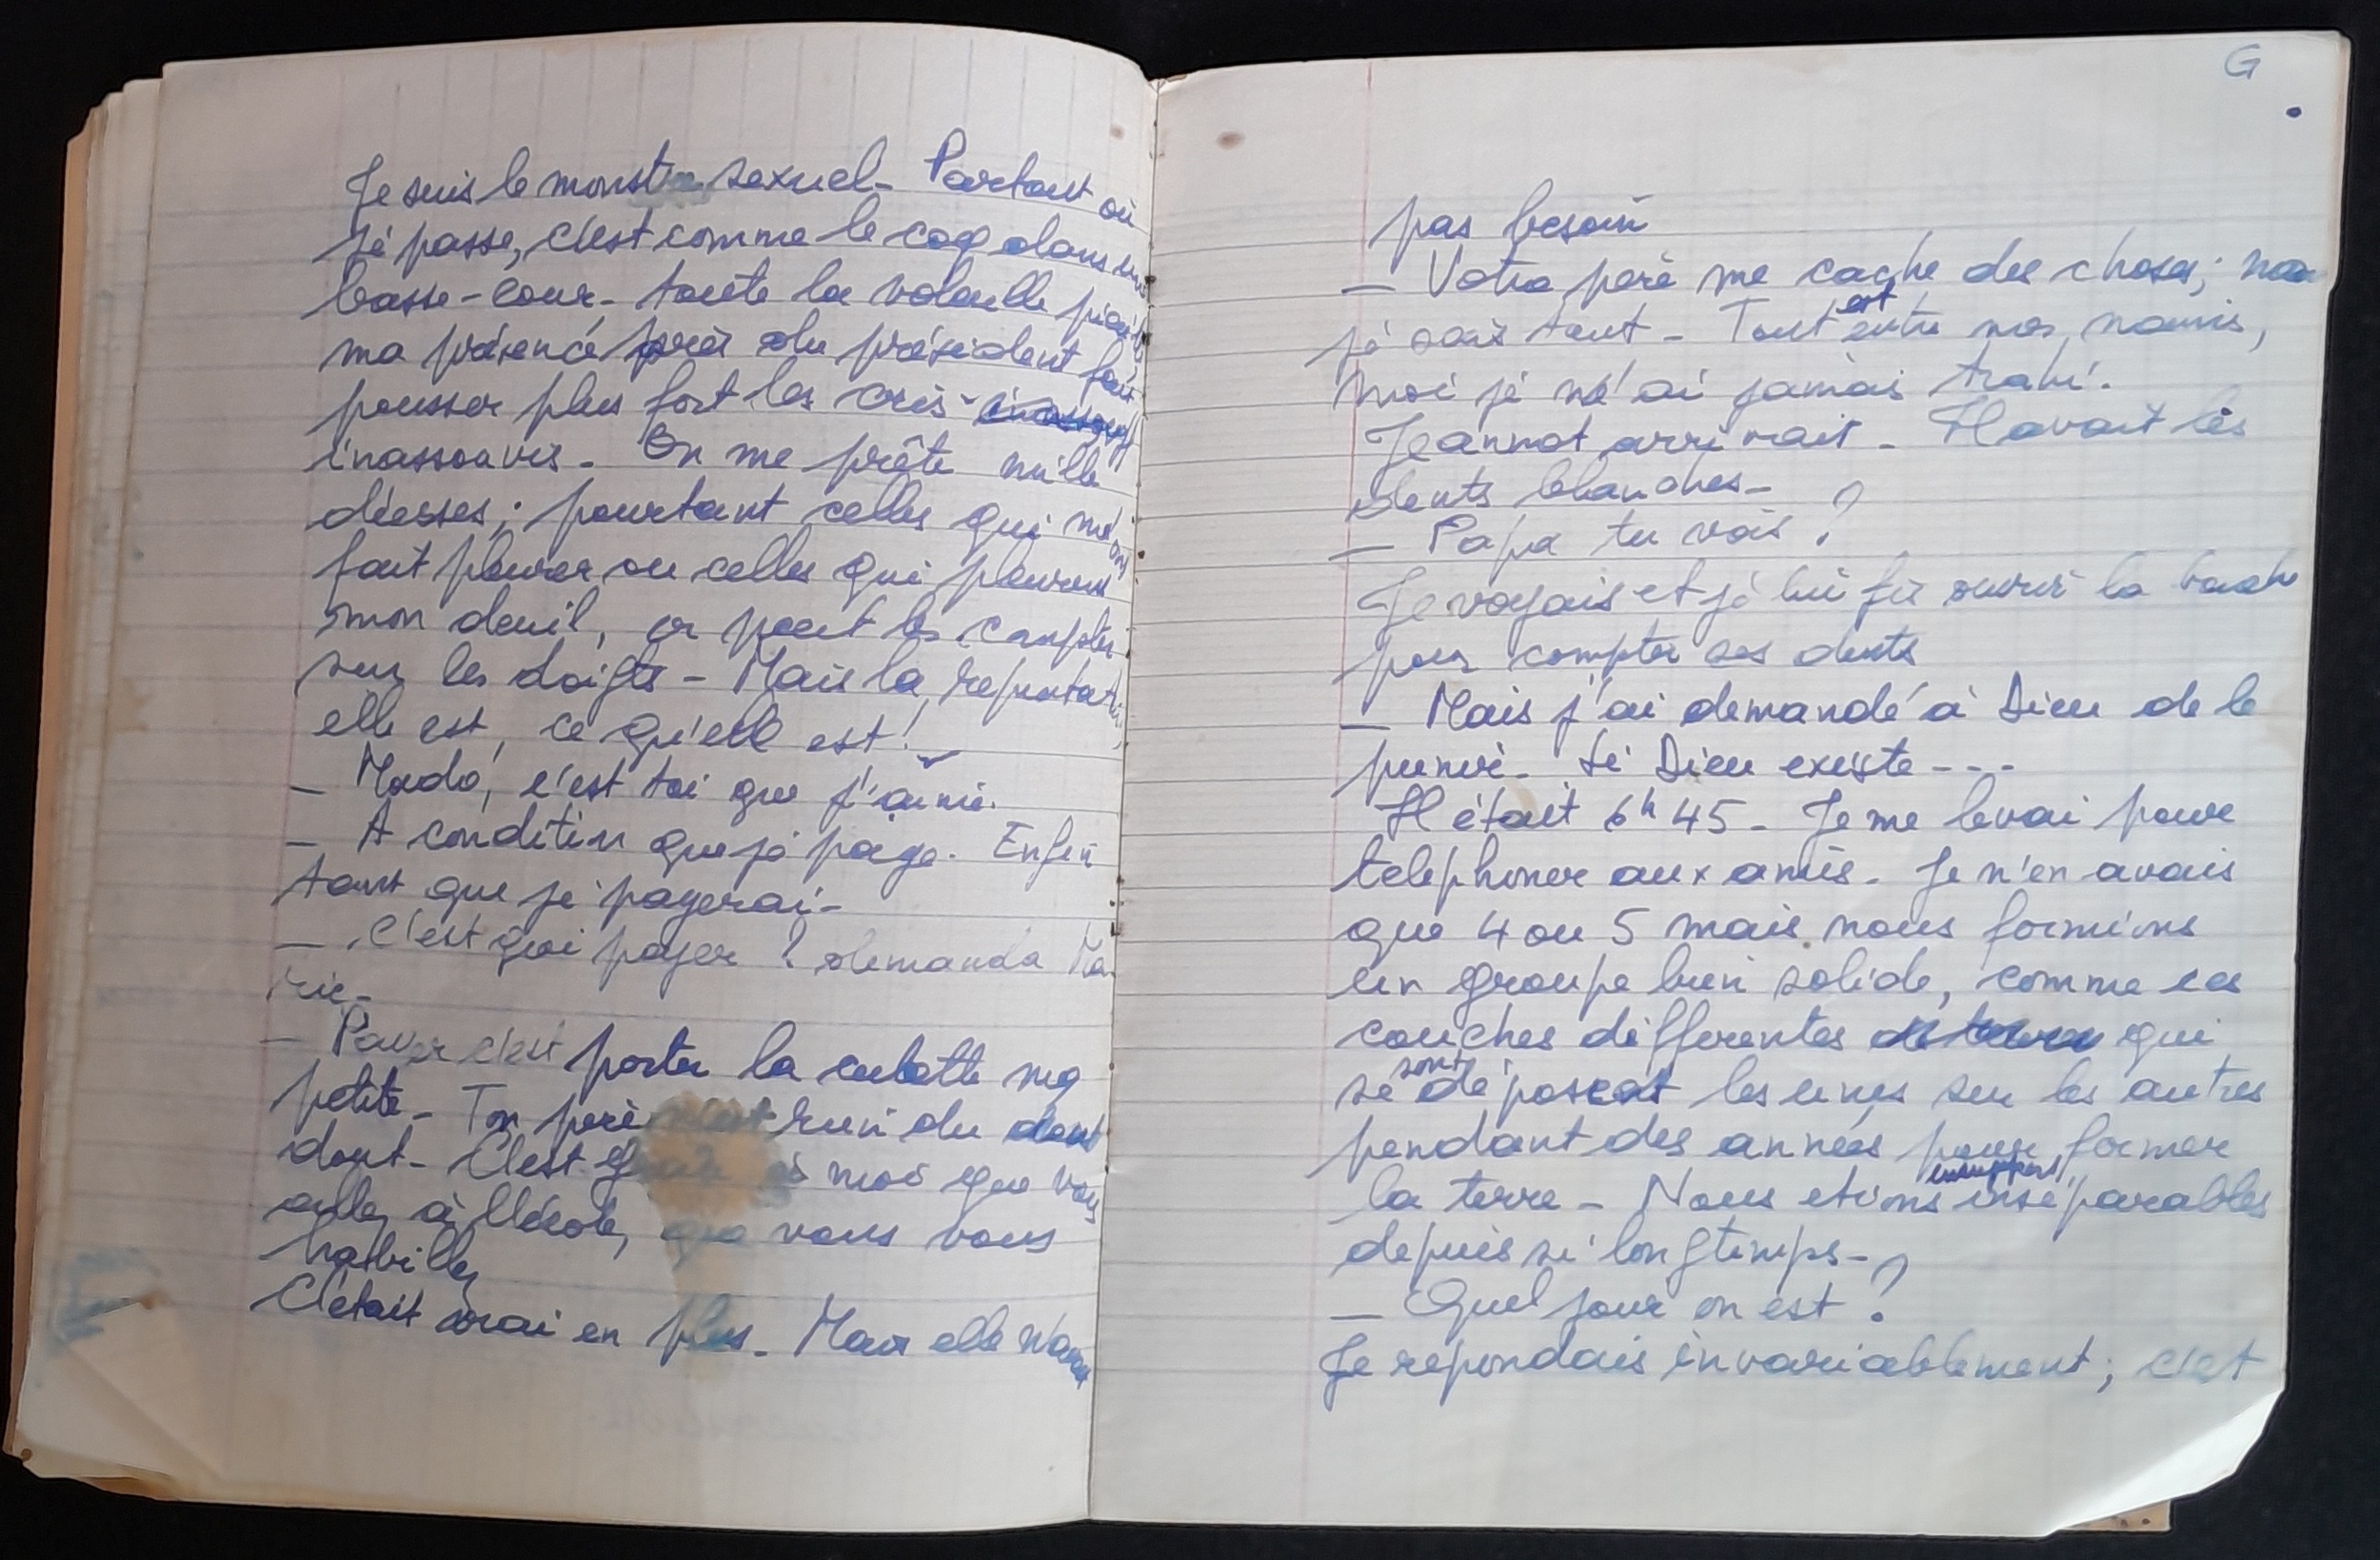 Je suis le monstre sexuel - Partout où
je passe, c'est comme le coq dans une
basse-cour - toute la volaille piaille
ma présence près du président fait
pousser plus fort les cris
inassouvis - On me prête mille
déesses ; pourtant celles qui m'ont
fait pleurer ou celles qui pleurent
mon deuil, on peut les compter
sur les doigts - Mais la reputation,
elle est, ce qu'elle est !
- Mado, c'est toi que j'aime.
- A condition que je paye. Enfin
tant que je payerai -
- C'est quoi payer ? demanda Ma
rie -
- Payer c'est porter la culotte ma
petite - Ton père n'est rien du
dout - C'est grâce à moi que vous
allez à l'école, que vous vous
habillez
C'était vrai en plus - Mais elle n'avait
G
pas besoin
- Votre père me cache des choses ; moi
je sais tout - Tout est entre mes mains,
moi je n'ai jamais trahi.
Jeannot arrivait - Il avait les
dents blanches -
- Papa tu vois ?
Je voyais et je lui fis ouvrir la bouche
pour compter ses dents
- Mais j'ai demandé à Dieu de le
punir - Si Dieu existe - - -
Il était 6h 45 - Je me levai pour
telephoner aux amis - Je n'en avais
que 4 ou 5 mais nous formions
un groupe bien solide, comme ces
couches differentes qui
se sont déposées les unes sur les autres
pendant des années pour former
la terre - Nous etions inséparables
depuis si longtemps -
- Quel jour on est ?
Je repondais invariablement ; c'est